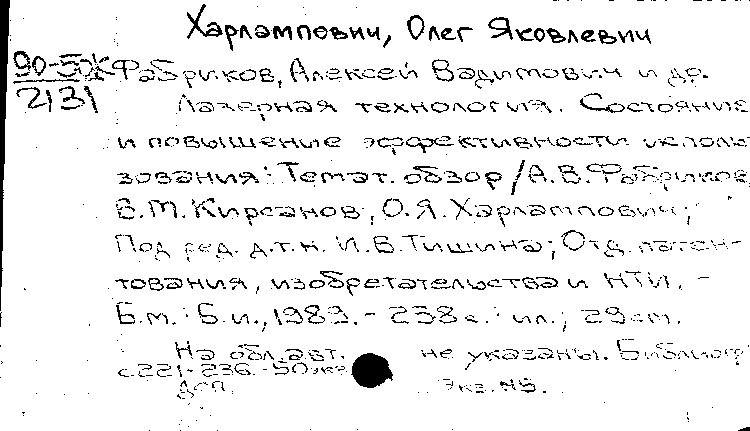 Харлампович, Олег Яковлевич
90-50Ж Фабриков, Алексей Вадимович и др.
2131 Лазерная технология. Состояние
и повышение эффективности исполь
зования: Темат. обзор / А.В.Фабриков,
В.М.Кирсанов, О.Я.Харлампович;
Под ред. д.т.н. И.В.Тишина; Отд. патен-
тования, изобретательства и НТИ. -
Б.м.: Б.и., 1989. - 238 с.: ил.; 29 см.
На обл. авт. не указаны. Библиогр
с.221-236. - 50 экз. Экз. №5.
Деп.